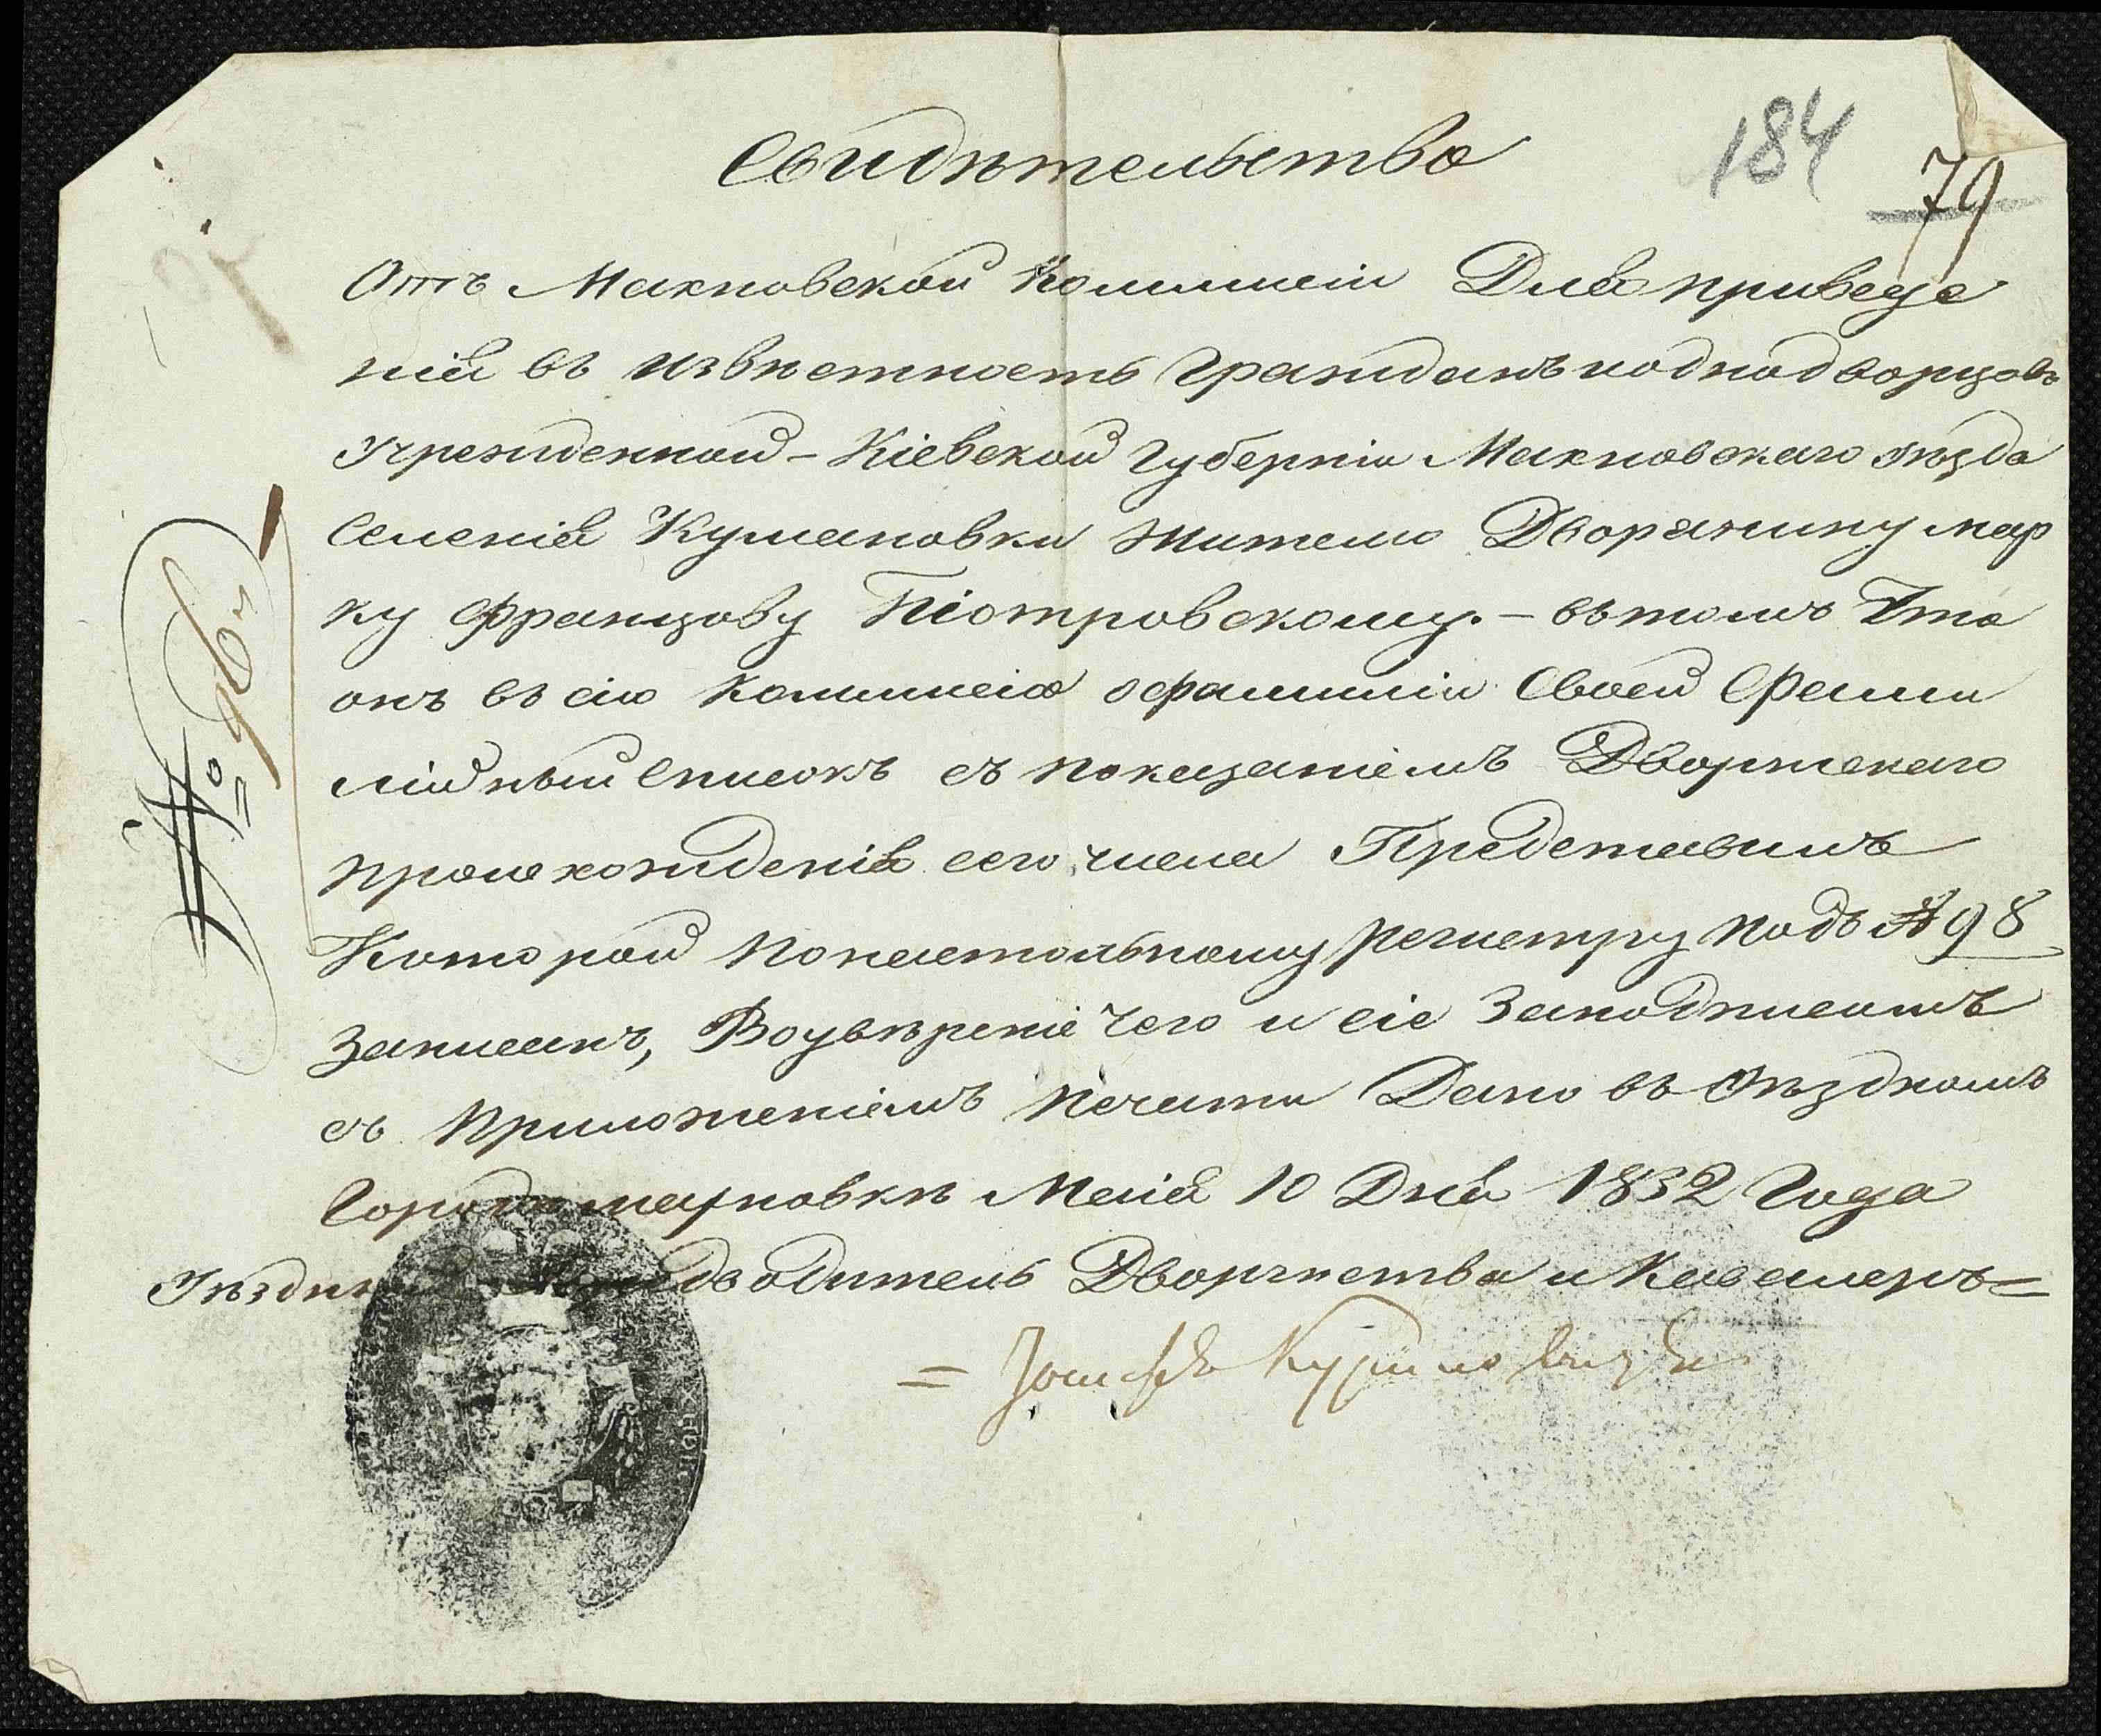 Свидѣтельство
184
79
Отъ Махновской Коммисіи Для приведе
нія въ извѣстность гражданъ иоднодворцовъ
Учрежденной - Кіевской Губерніи Махновскаго уѣзда
Селенія Кумановки Жителю Дворянину Мар
ку Францову Піотровскому. - въ томъ Что
онъ въ сію Коммисію о фамиліи Своей Фами
лійный Списокъ съ показаніемъ Дворянскаго
происхожденія сего числа Представилъ
Которой По настольному регистру подъ № 98
Записанъ, Воувѣреніе Чего и сіе За подписомъ
съ Приложеніемъ Печати Дано въ Уѣздномъ
Городѣ Махновкѣ Маія 10 Дня 1832 Года
Уѣздный дводитель Дворянства и Кавалеръ =
= Іосифъ
№ 96